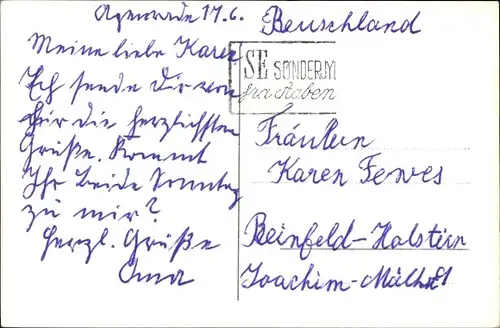 Apenrade 17.6.
Meine liebe Karen
Ich sende Dir von
hir die herzlichsten
Grüße. Kommt
Ihr beide Sonntag
zu mir?
Herzl. Grüße
Oma
Deuschland
SE SØNDERJYL
fra Aaben
Fräulein
Karen Fewes
Beinfeld-Holstein
Joachim-Mähl-St